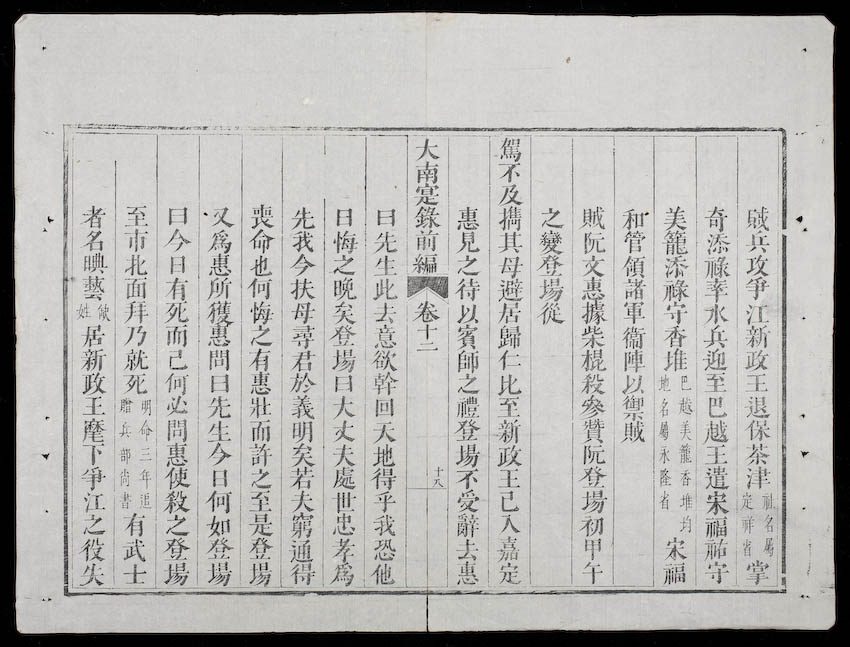 戝兵攻爭江新政王退保茶津社名屬定祥省掌
奇添祿率水兵迎至巴越王遣宋福祐守
美籠添祿守香堆巴越美籠香堆均地名屬永隆省宋福
和管領諸軍衞陣以禦賊
賊阮文惠據柴棍殺參贊阮登塲初甲午
之變登塲從
駕不及擕其母避居歸仁比至新政王已入嘉定
惠見之待以賓師之禮登塲不受辭去惠
大南寔錄前編 卷十二 十八
曰先生此去意欲幹回天地得乎我恐他
日悔之晚矣登塲曰大丈夫處世忠孝爲
先我今扶母尋君於義明矣若夫窮通得
喪命也何悔之有惠壯而許之至是登塲
又爲惠所獲惠問曰先生今日何如登塲
曰今日有死而已何必問惠使殺之登塲
至市北面拜乃就死明命三年追贈兵部尚書有武士
者名㬌藝缺姓居新政王麾下爭江之役失